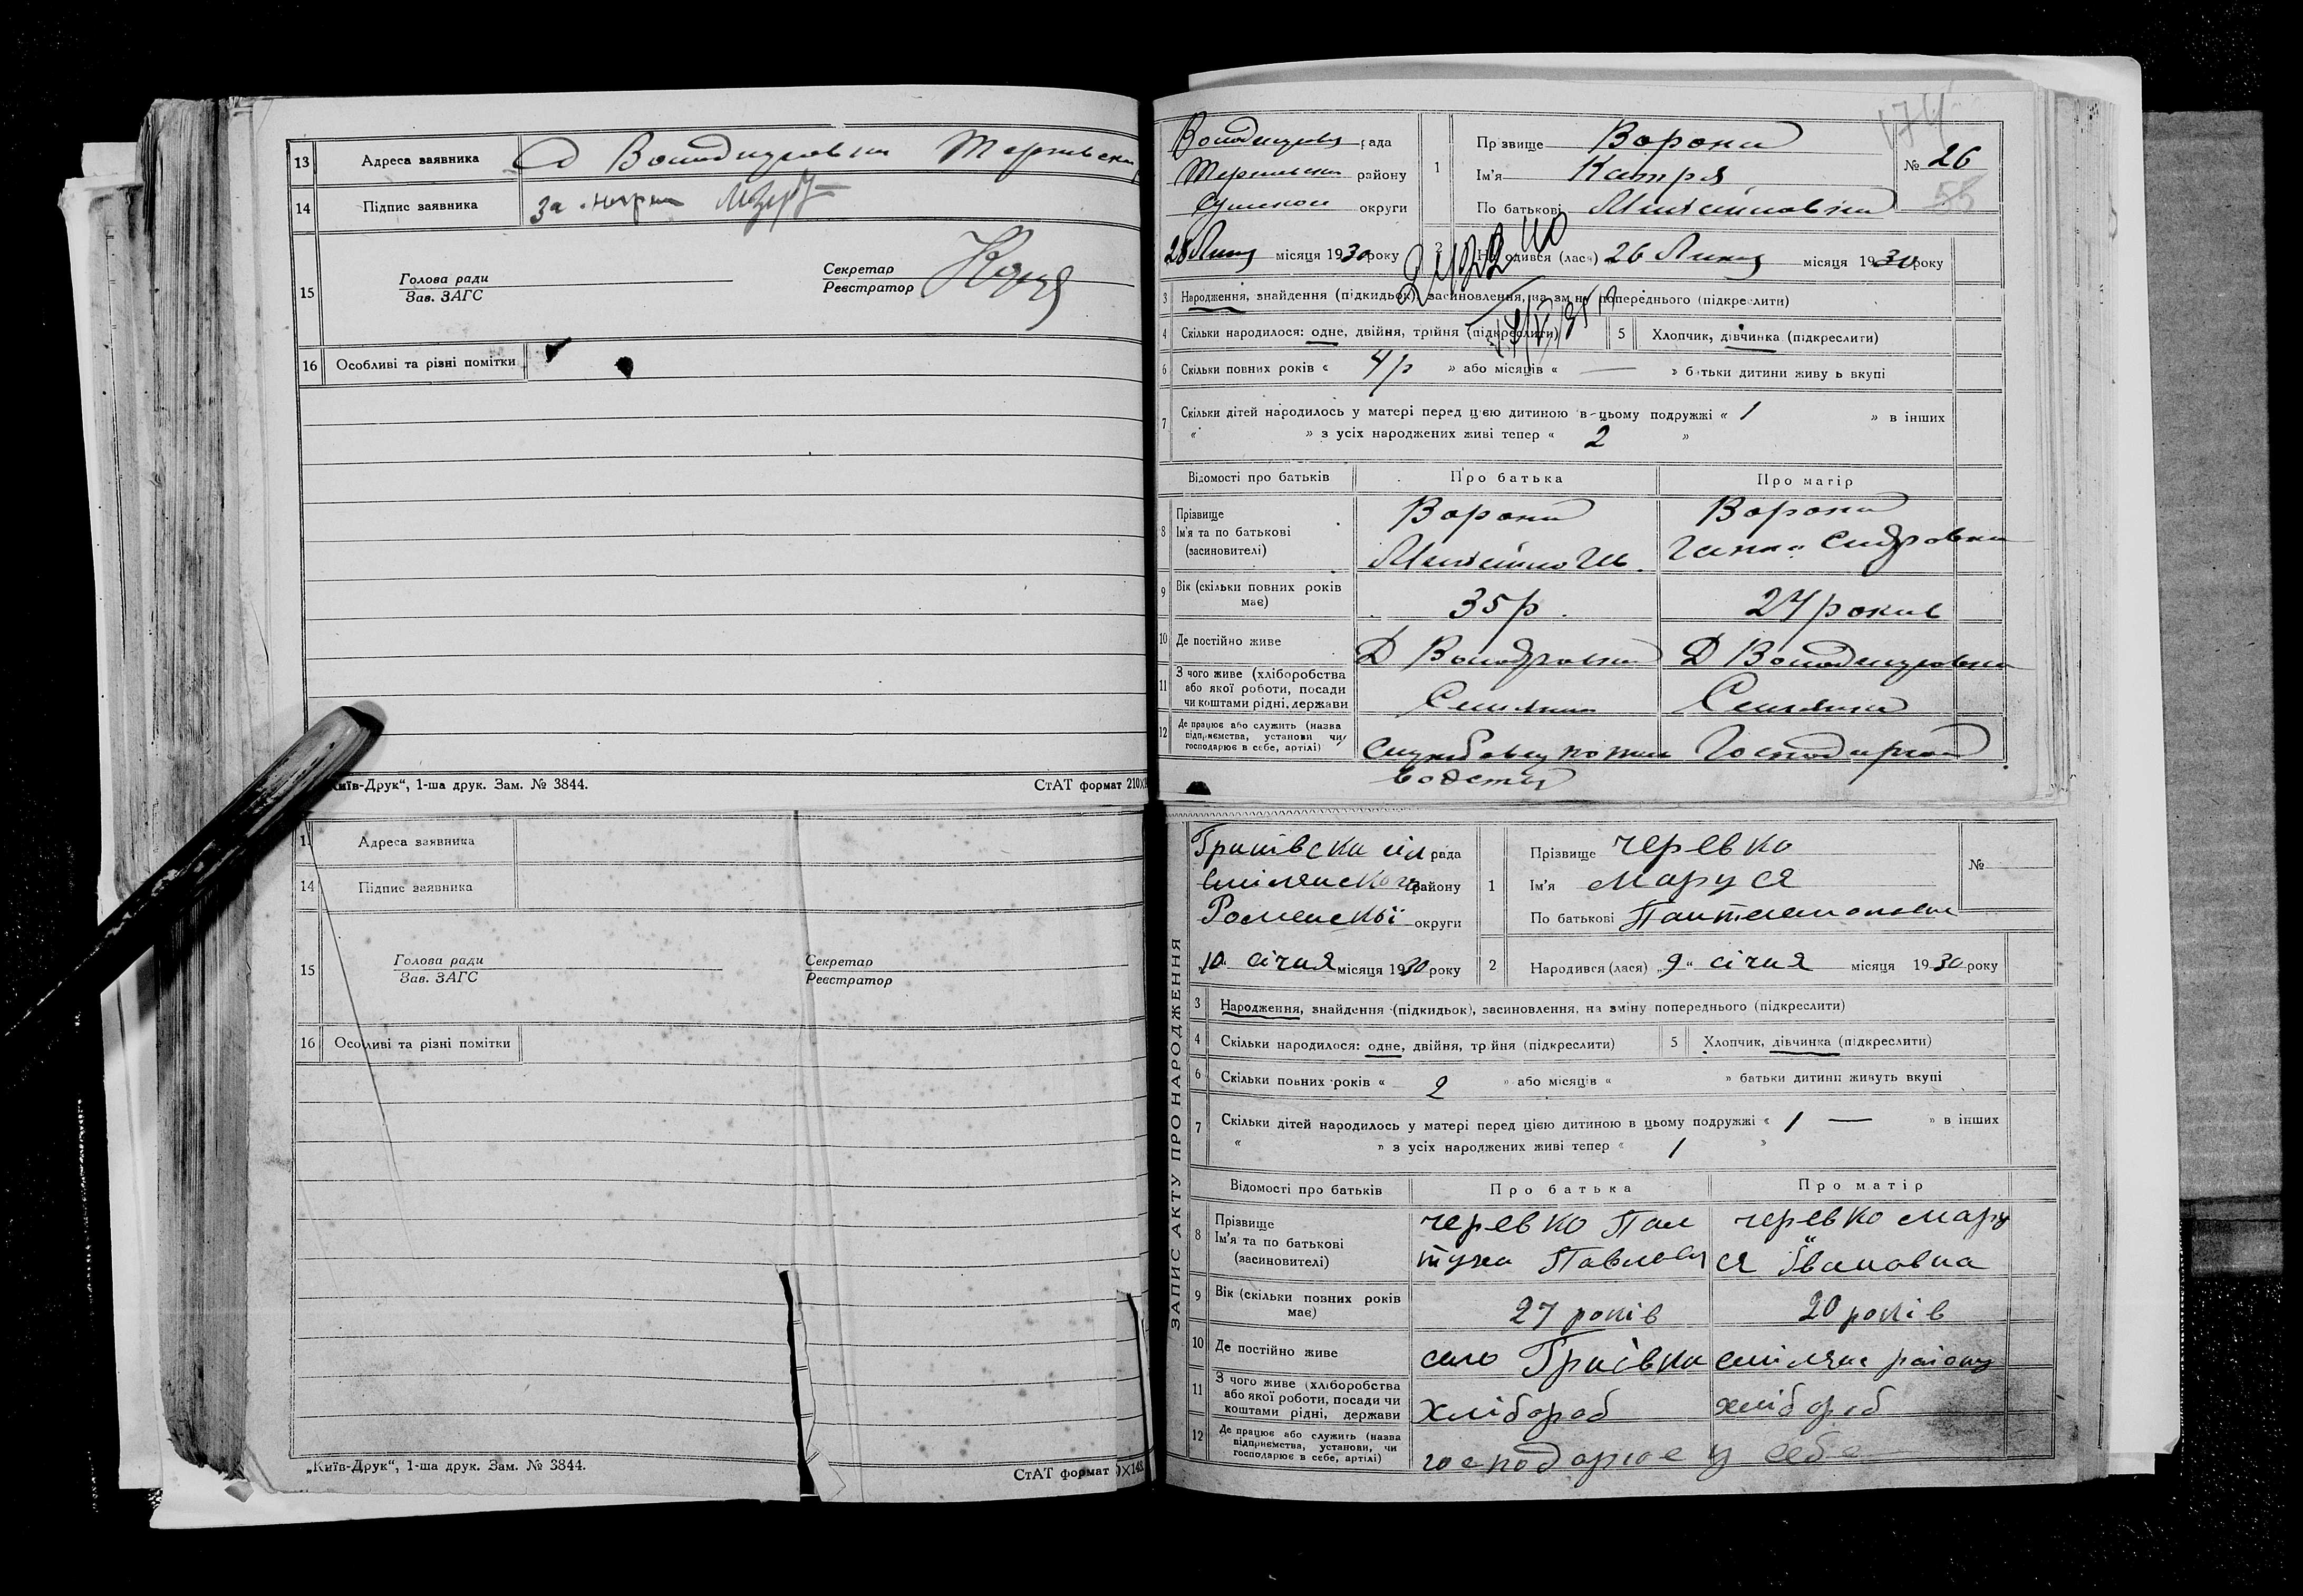 13 Адреса заявника
14 Підпис заявника За
15 Голова ради
Зав. ЗАГС
Секретар
Реєстратор
16 Особливі та різні помітки
„Київ-Друк“, 1-ша друк. Зам. № 3844.
СтАТ формат 210×
13 Адреса заявника
14 Підпис заявника
15 Голова ради
Зав. ЗАГС
Секретар
Реєстратор
16 Особливі та різні помітки
„Київ-Друк“, 1-ша друк. Зам. № 3844.
СтАТ формат
рада
району
округи
1 Прізвище Ворона
Ім'я Катря
По батькові Михайловна
№ 26
174
58
28 Липця місяця 1930 року
2 Народився (лася) 26 Липця місяця 1930 року
3 Народження, знайдення (підкидьок), засиновлення, на зміну попереднього (підкреслити)
4 Скільки народилося: одне, двійня, трійня (підкреслити)
5 Хлопчик, дівчинка (підкреслити)
6 Скільки повних років « 4р » або місяців « — » батьки дитини живуть вкупі
7 Скільки дітей народилось у матері перед цією дитиною в цьому подружжі « 1 » в інших
« » з усіх народжених живі тепер « 2 »
Відомості про батьків Про батька Про матір
8 Прізвище
Ім'я та по батькові
(засиновителі)
Ворона
Ворона
Ганна Сидоровна
9 Вік (скільки повних років
має)
35 р.
27 років
10 Де постійно живе
11 З чого живе (хліборобства
або якої роботи, посади
чи коштами рідні, держави
Селянин
Селянка
12 Де працює або служить (назва
підприємства, установи чи
господарює в себе, артілі)
ЗАПИС АКТУ ПРО НАРОДЖЕННЯ
рада
району
Роменської округи
1 Прізвище Черевко
Ім'я Маруся
По батькові Пантелемоновна
№
10 січня місяця 1930 року
2 Народився (лася) „9“ січня місяця 1930 року
3 Народження, знайдення (підкидьок), засиновлення, на зміну попереднього (підкреслити)
4 Скільки народилося: одне, двійня, трійня (підкреслити)
5 Хлопчик, дівчинка (підкреслити)
6 Скільки повних років « 2 » або місяців « » батьки дитини живуть вкупі
7 Скільки дітей народилось у матері перед цією дитиною в цьому подружжі « 1 — » в інших
« » з усіх народжених живі тепер « 1 »
Відомості про батьків Про батька Про матір
8 Прізвище
Ім'я та по батькові
(засиновителі)
Черевко Пан
Черевко Мару
ся Івановна
9 Вік (скільки повних років
має)
27 років
20 років
10 Де постійно живе
село
району
11 З чого живе (хліборобства
або якої роботи, посади чи
коштами рідні, держави
хлібороб
хлібороб
12 Де працює або служить (назва
підприємства, установи, чи
господарює в себе, артілі)
господарює у себе